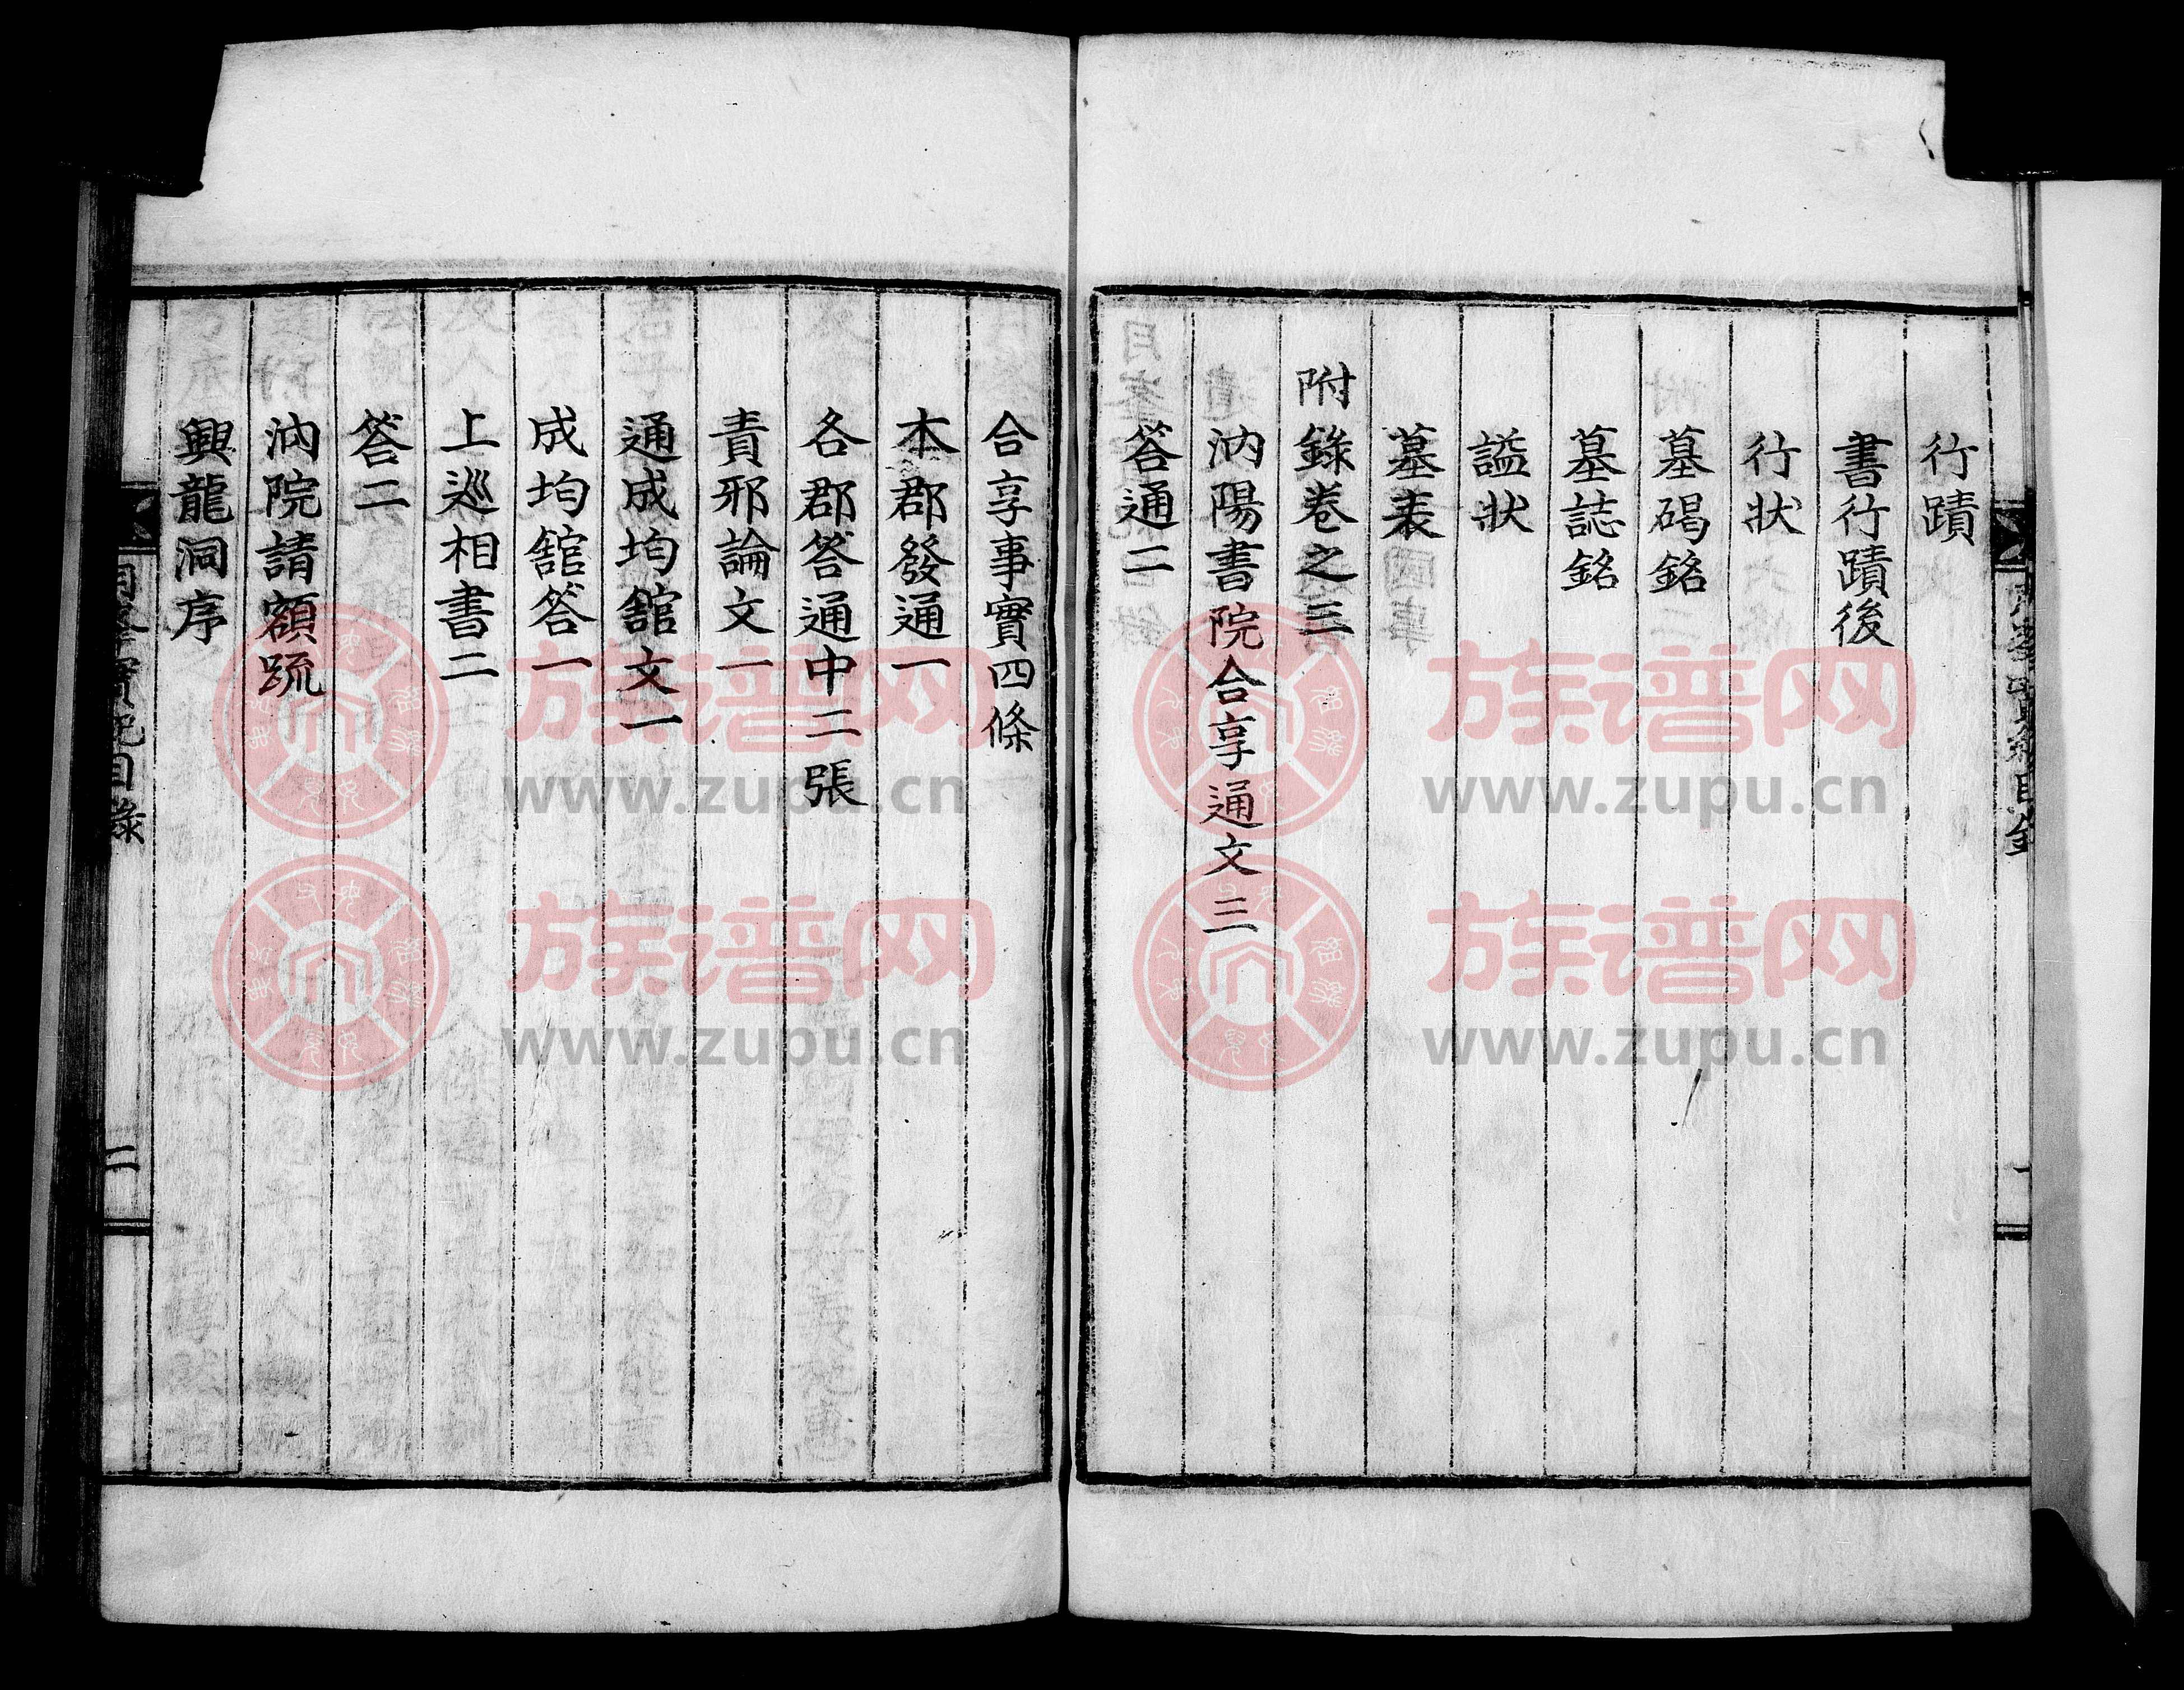 行蹟
書行蹟後
行狀
墓碣銘
墓誌銘
謚狀
墓表
附錄卷之三
汭陽書院合享通文三
答通二
合享事實四條
本郡發通一
各郡答通中二張
責邪論文一
通成均舘文一
成均舘答一
上巡相書二
答二
汭院請額疏
興龍洞序
實紀目錄
二
族谱网
www.zupu.cn
族谱网
www.zupu.cn
族谱网
www.zupu.cn
族谱网
www.zupu.cn